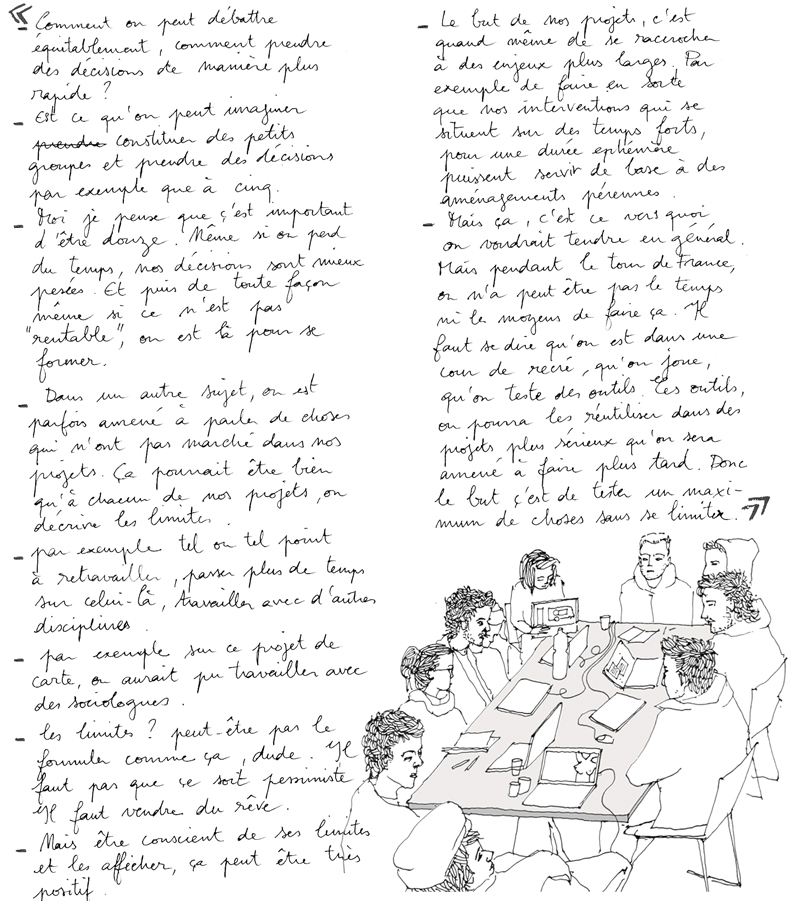 « - Comment on peut débattre
équitablement, comment prendre
des décisions de manière plus
rapide ?
- Est ce qu'on peut imaginer
prendre constituer des petits
groupes et prendre des décisions
par exemple que à cinq.
- Moi je pense que ç'est important
d'être douze. Même si on perd
du temps, nos décisions sont mieux
pesées. Et puis de toute façon
même si ce n'est pas
"rentable", on est là pour se
former.
- Dans un autre sujet, on est
parfois amené à parler de choses
qui n'ont pas marché dans nos
projets. Ça pourrait être bien
qu'à chacun de nos projets, on
décrive les limites.
- par exemple tel ou tel point
à retravailler, passer plus de temps
sur celui-là, travailler avec d'autres
disciplines.
- par exemple sur ce projet de
carte, on aurait pu travailler avec
des sociologues.
- les limites ? peut-être pas le
formuler comme ça, dude. Il
faut pas que çe soit pessimiste
Il faut vendre du rêve.
- Mais être conscient de ses limites
et les afficher, ça peut être très
positif.
- Le but de nos projets, c'est
quand même de se raccrocher
à des enjeux plus larges. Par
exemple de faire en sorte
que nos interventions qui se
situent sur des temps forts,
pour une durée éphémère
puissent servir de base à des
aménagements pérennes.
- Mais ça, c'est ce vers quoi
on voudrait tendre en général.
Mais pendant le tour de France,
on n'a peut être pas le temps
ni le moyens de faire ça. Il
faut se dire qu'on est dans une
cour de récré, qu'on joue,
qu'on teste des outils. Ces outils,
on pourra les réutiliser dans des
projets plus sérieux qu'on sera
amené à faire plus tard. Donc
le but ç'est de tester un maxi-
mum de choses sans se limiter. »